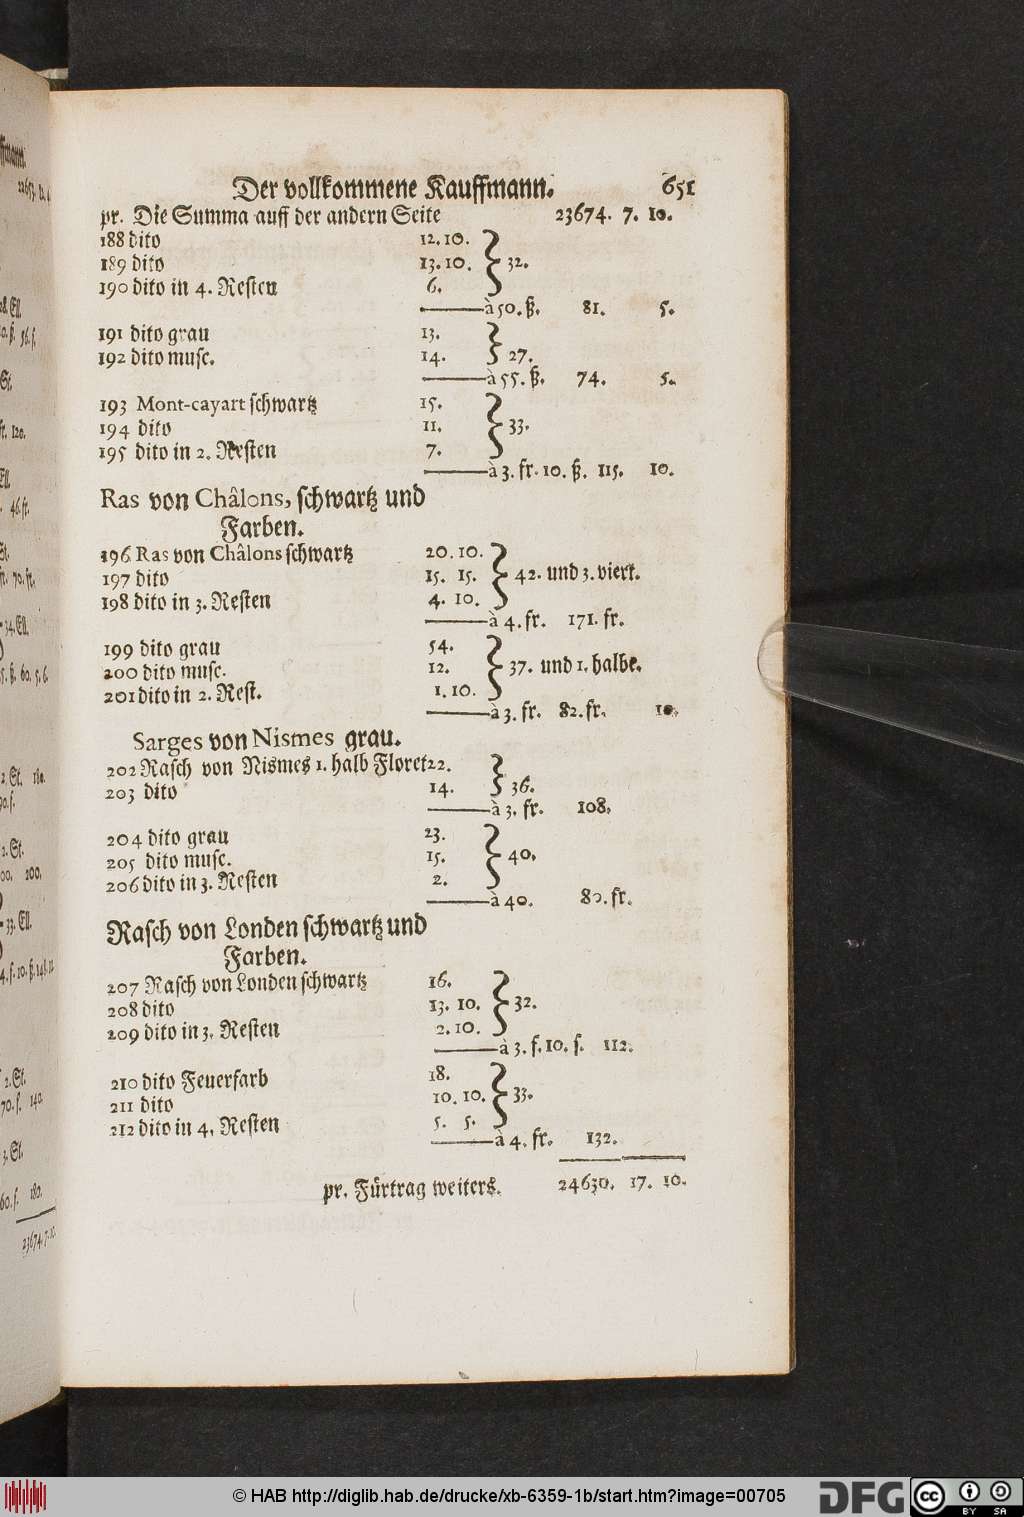 Der vollkommene Kauffmann. 651
pr. Die Summa auff der andern Seite 23674. 7. 10.
188 dito 12. 10.
189 dito 13. 10. 32.
190 dito in 4. Resten 6.
à 50. ß. 81. 5.
191 dito grau 13.
192 dito musc. 14. 27.
à 55. ß. 74. 5.
193 Mont-cayart schwartz 15.
194 dito 11. 33.
195 dito in 2. Resten 7.
à 3. fr. 10. ß. 115. 10.
Ras von Châlons, schwartz und
Farben.
196 Ras von Châlons schwartz 20. 10.
197 dito 15. 15. 42. und 3. viert.
198 dito in 3. Resten 4. 10.
à 4. fr. 171. fr.
199 dito grau 54.
200 dito musc. 12. 37. und 1. halbe.
201 dito in 2. Rest. 1. 10.
à 3. fr. 82. fr. 10.
Sarges von Nismes grau.
202 Rasch von Nismes 1. halb Floret 22.
203 dito 14. 36.
à 3. fr. 108.
204 dito grau 23.
205 dito musc. 15. 40.
206 dito in 3. Resten 2.
à 40. 80. fr.
Rasch von Londen schwartz und
Farben.
207 Rasch von Londen schwartz 16.
208 dito 13. 10. 32.
209 dito in 3. Resten 2. 10.
à 3. f. 10. s. 112.
210 dito Feuerfarb 18.
211 dito 10. 10. 33.
212 dito in 4. Resten 5. 5.
à 4. fr. 132.
pr. Fürtrag weiters. 24630. 17. 10.
© HAB http://diglib.hab.de/drucke/xb-6359-1b/start.htm?image=00705
DFG
cc BY SA